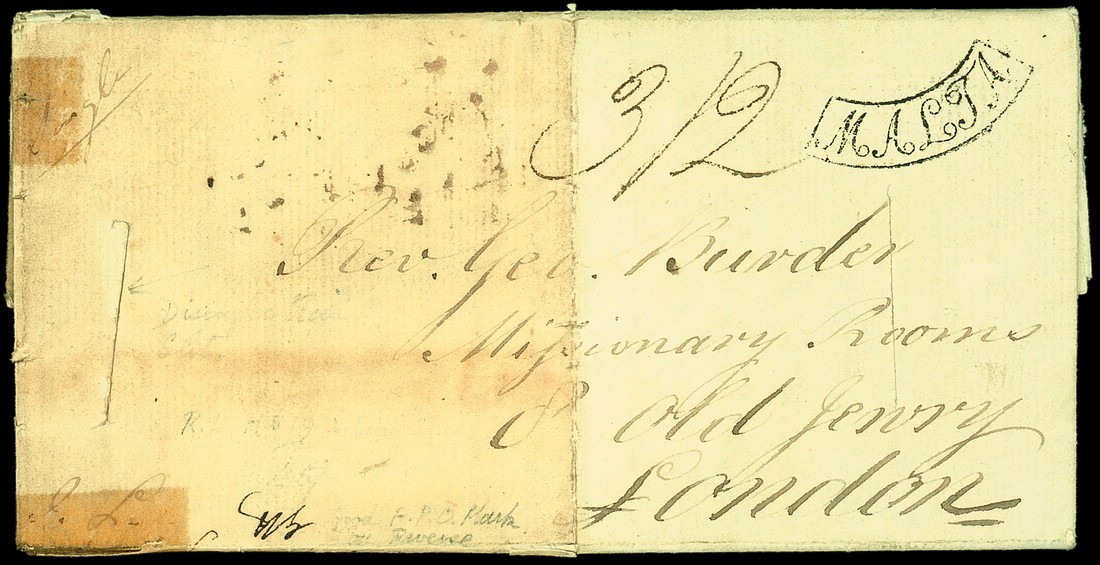 3/2
MALTA
Rev. Geo. Burder
Missionary Rooms
8 Old Jewry
London
Disinfection
Slit
good F.P.O. Mark
on Reverse